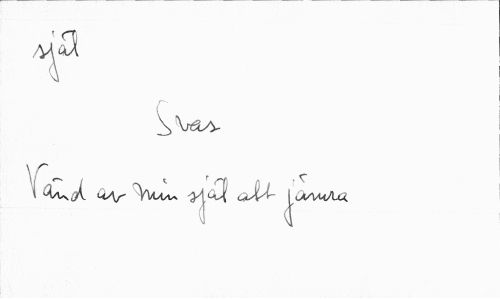 själ
Svas
Vänd av min själ att jämra